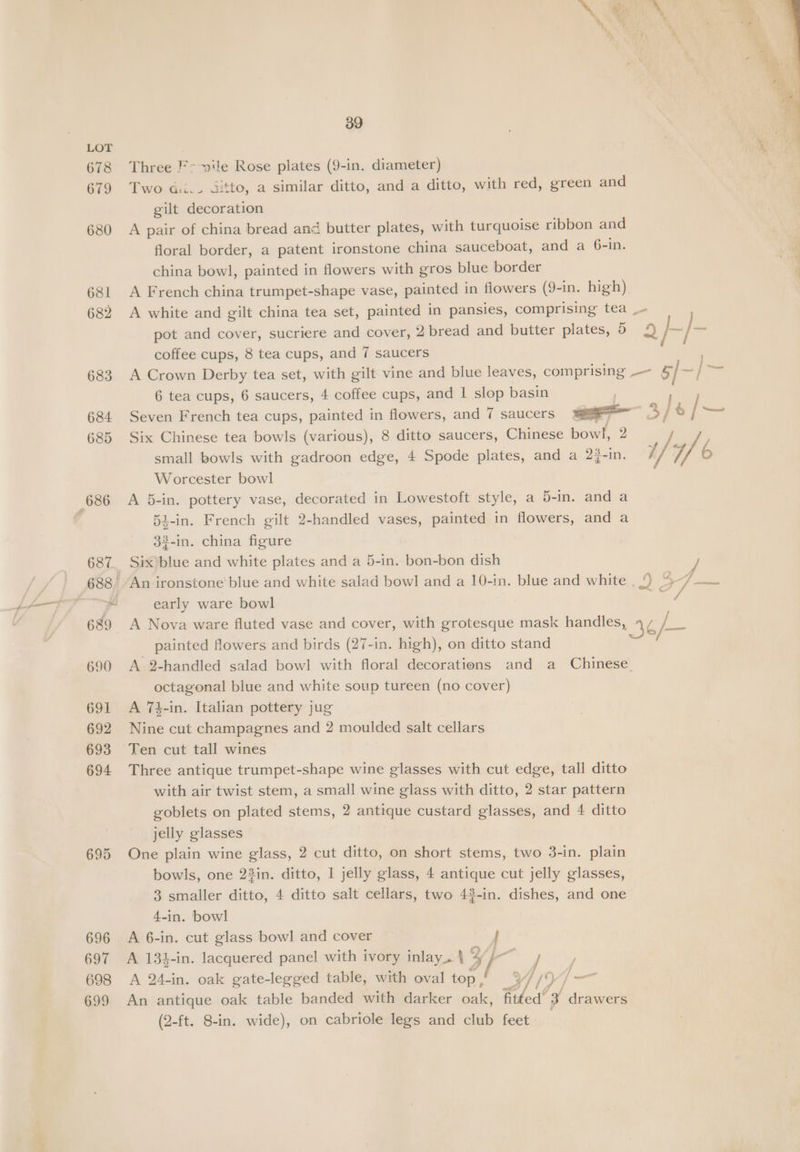 39
LOT
678 Three F ile Rose plates (9-in. diameter)
679 Two ditto, a similar ditto, and a ditto, with red, green and
gilt decoration
680 A pair of china bread and butter plates, with turquoise ribbon and
floral border, a patent ironstone china sauceboat, and a 6-in.
china bowl, painted in flowers with gros blue border
681 A French china trumpet-shape vase, painted in flowers (9-in. high)
682 A white and gilt china tea set, painted in pansies, comprising tea
pot and cover, sucriere and cover, 2 bread and butter plates, 5 2/-/-
coffee cups, 8 tea cups, and 7 saucers
683 A Crown Derby tea set, with gilt vine and blue leaves, comprising — 5/-/-
6 tea cups, 6 saucers, 4 coffee cups, and 1 slop basin
684 Seven French tea cups, painted in flowers, and 7 saucers 3/6/-
685 Six Chinese tea bowls (various), 8 ditto saucers, Chinese bowl, 2
small bowls with gadroon edge, 4 Spode plates, and a 2¾-in.
Worcester bowl
686 A 5-in. pottery vase, decorated in Lowestoft style, a 5-in. and a
5½-in. French gilt 2-handled vases, painted in flowers, and a
3¾-in. china figure
687 Six blue and white plates and a 5-in. bon-bon dish
688 An ironstone blue and white salad bowl and a 10-in. blue and white
early ware bowl
689 A Nova ware fluted vase and cover, with grotesque mask handles,
painted flowers and birds (27-in. high), on ditto stand
690 A 2-handled salad bowl with floral decorations and a Chinese
octagonal blue and white soup tureen (no cover)
691 A 7½-in. Italian pottery jug
692 Nine cut champagnes and 2 moulded salt cellars
693 Ten cut tall wines
694 Three antique trumpet-shape wine glasses with cut edge, tall ditto
with air twist stem, a small wine glass with ditto, 2 star pattern
goblets on plated stems, 2 antique custard glasses, and 4 ditto
jelly glasses
695 One plain wine glass, 2 cut ditto, on short stems, two 3-in. plain
bowls, one 2¾in. ditto, 1 jelly glass, 4 antique cut jelly glasses,
3 smaller ditto, 4 ditto salt cellars, two 4¾-in. dishes, and one
4-in. bowl
696 A 6-in. cut glass bowl and cover
697 A 13½-in. lacquered panel with ivory inlay
698 A 24-in. oak gate-legged table, with oval top
699 An antique oak table banded with darker oak, fitted 3 drawers
(2-ft. 8-in. wide), on cabriole legs and club feet